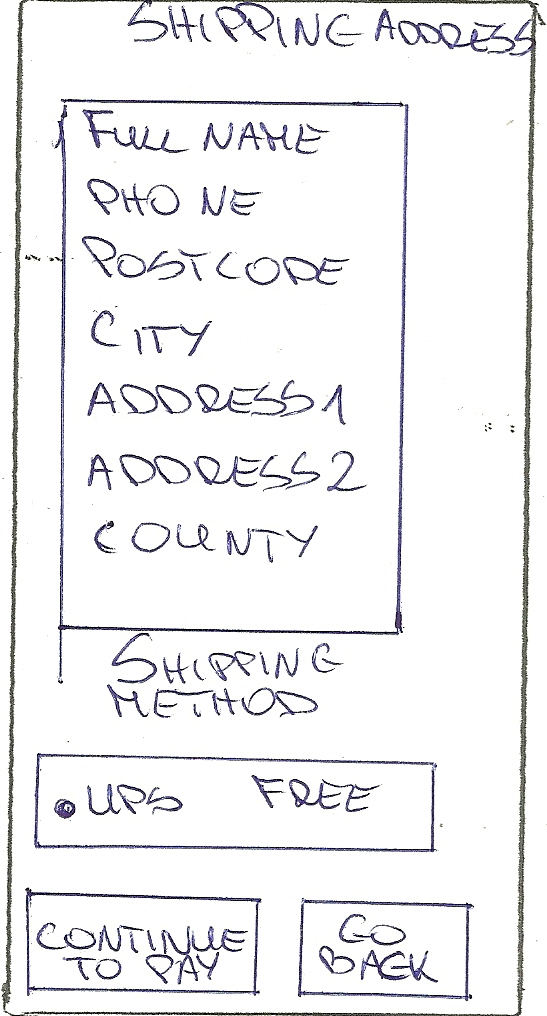 SHIPPING ADDRESS
FULL NAME
PHONE
POSTCODE
CITY
ADDRESS 1
ADDRESS 2
COUNTY
SHIPPING
METHOD
UPS FREE
CONTINUE
TO PAY
GO
BACK